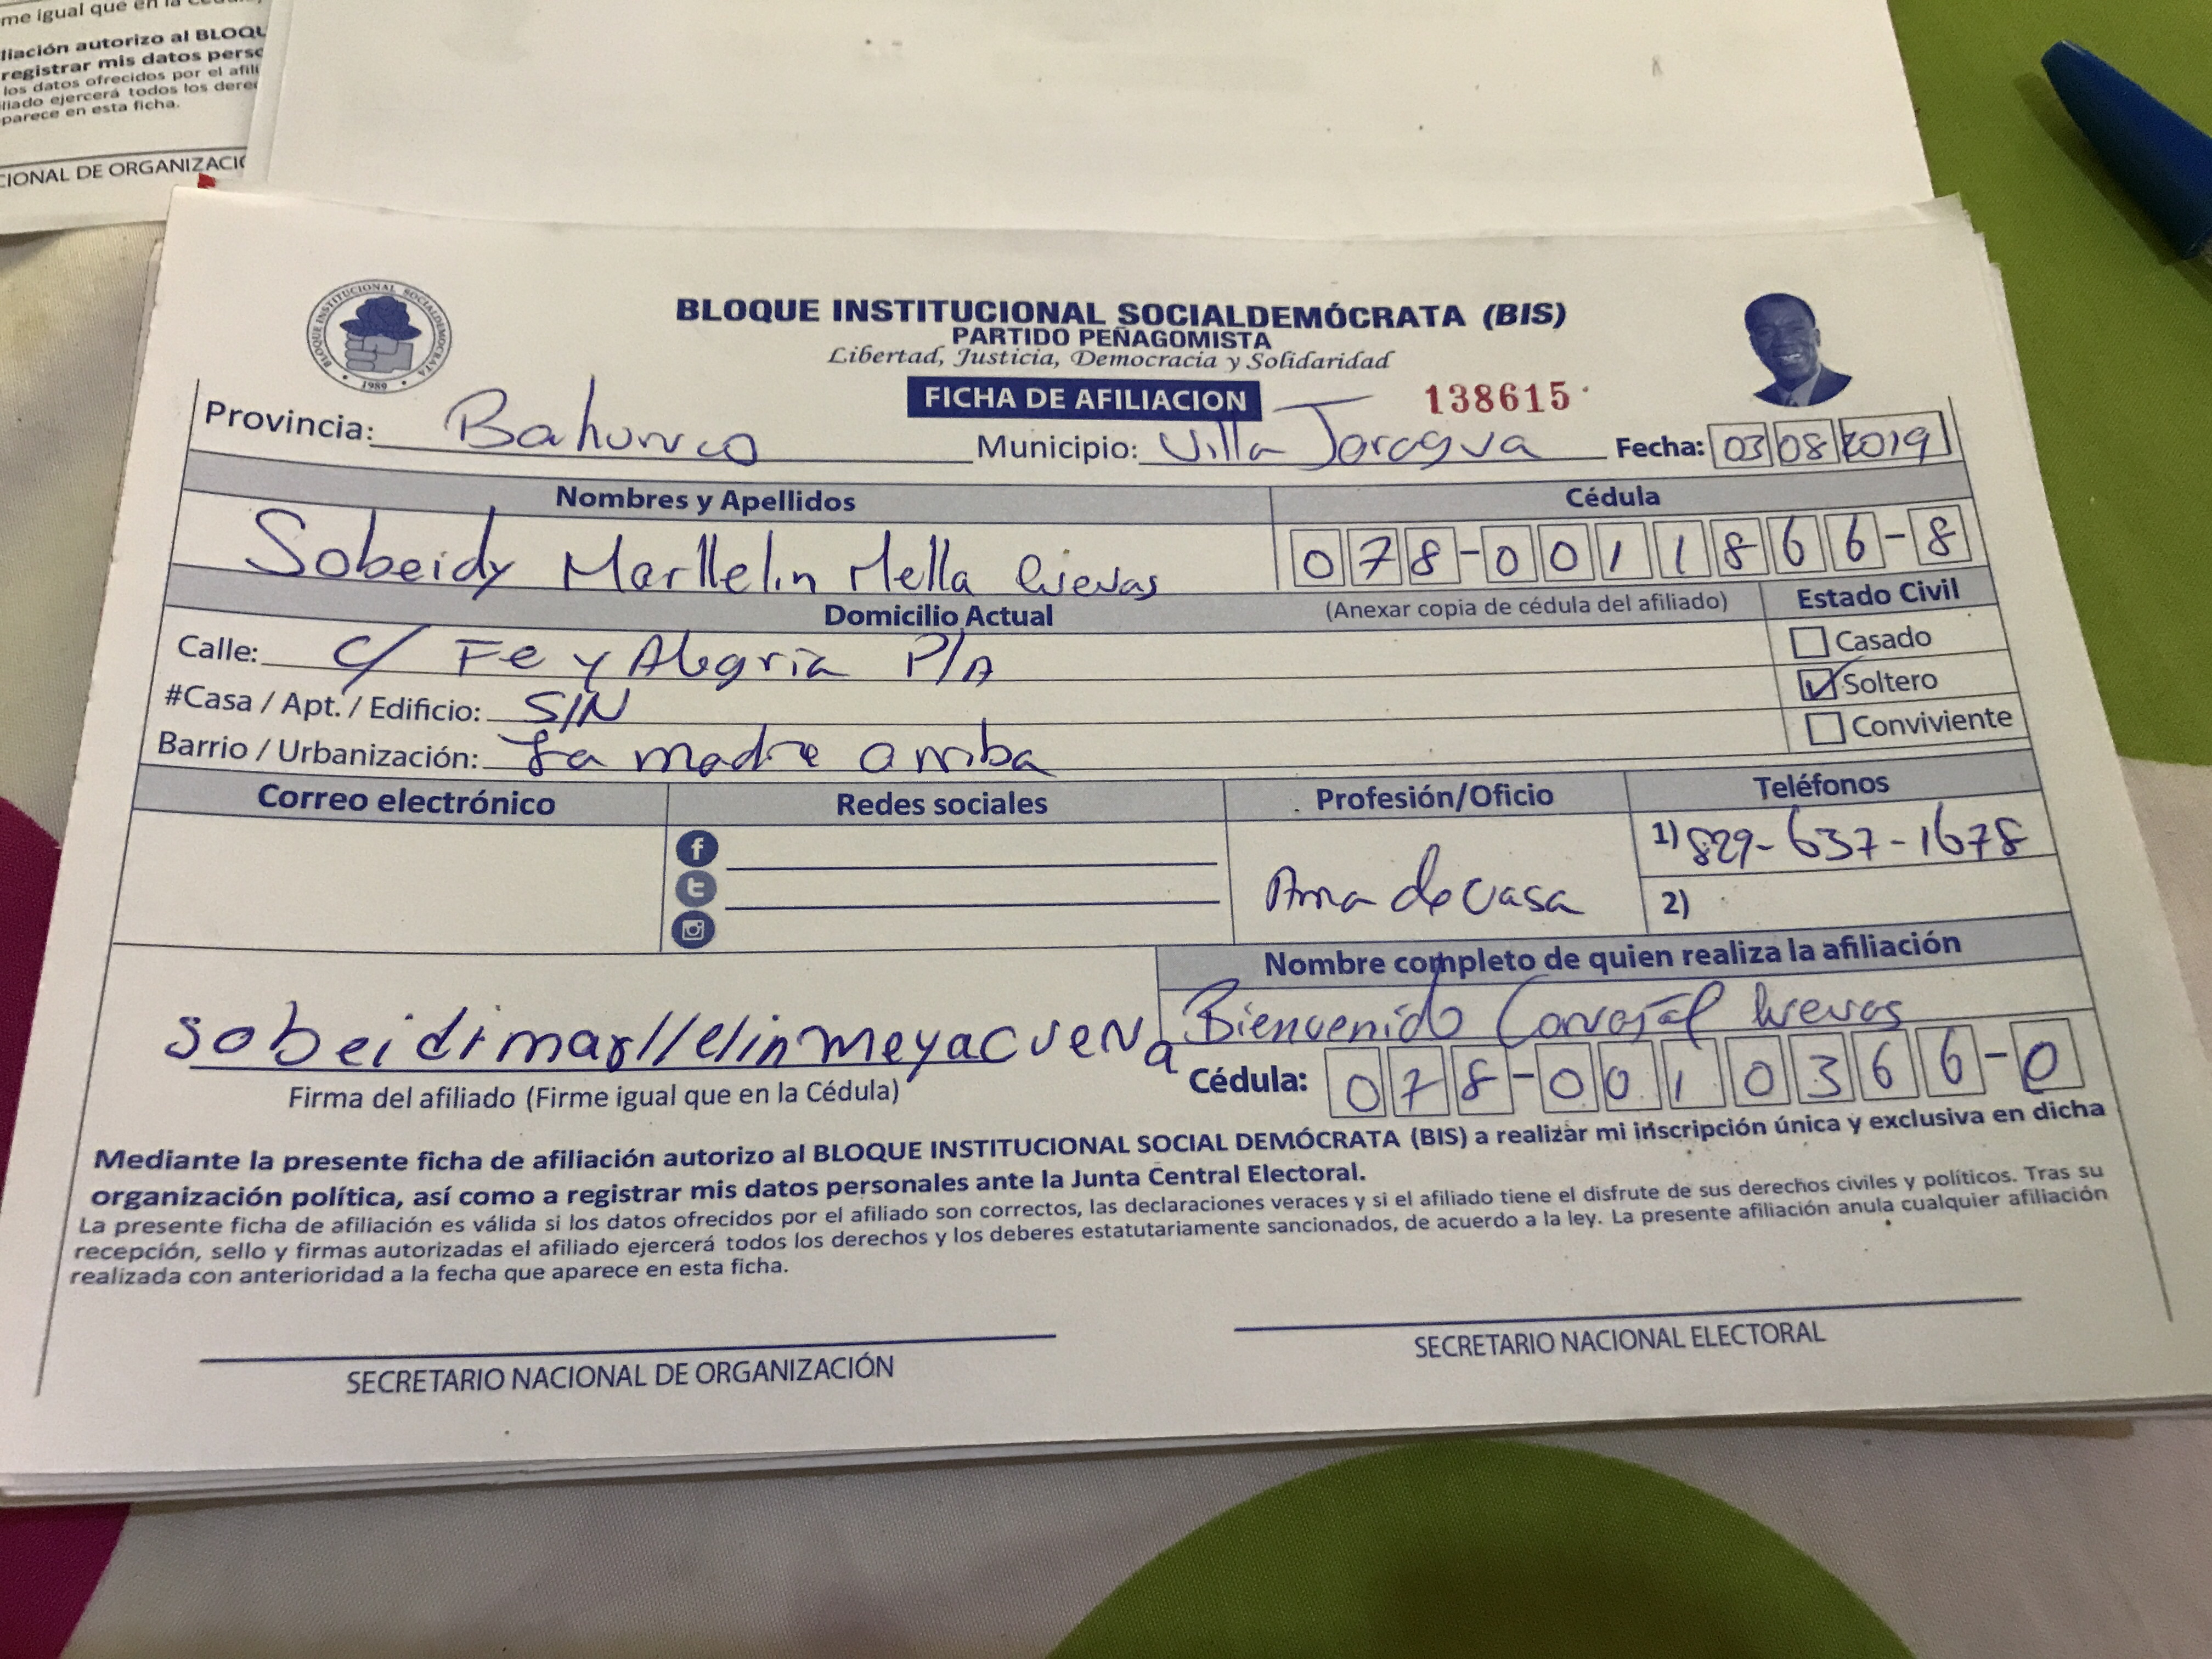 me igual que en la
liación autorizo al BLOQU
registrar mis datos perso
los datos ofrecidos por el afili
liado ejercerá todos los derec
parece en esta ficha.
CIONAL DE ORGANIZACIÓ
BLOQUE INSTITUCIONAL SOCIALDEMOCRATA
1989
BLOQUE INSTITUCIONAL SOCIALDEMÓCRATA (BIS)
PARTIDO PEÑAGOMISTA
Libertad, Justicia, Democracia y Solidaridad
FICHA DE AFILIACION 138615
Provincia: Bahoruco Municipio: Villa Jaragua Fecha: 03 08 2019
Nombres y Apellidos Cédula
Sobeidy Marllelin Mella Cuevas 078-0011866-8
Domicilio Actual (Anexar copia de cédula del afiliado) Estado Civil
Calle: C/ Fe y Alegria P/A Casado
#Casa / Apt. / Edificio: S/N Soltero
Barrio / Urbanización: La madre arriba Conviviente
Correo electrónico Redes sociales Profesión/Oficio Teléfonos
1) 829-637-1678
Ama de casa
2)
Nombre completo de quien realiza la afiliación
sobeidimarllelinmeyacueva Bienvenido Carvajal Cuevas
Firma del afiliado (Firme igual que en la Cédula) Cédula: 078-0010366-0
Mediante la presente ficha de afiliación autorizo al BLOQUE INSTITUCIONAL SOCIAL DEMÓCRATA (BIS) a realizar mi inscripción única y exclusiva en dicha
organización política, así como a registrar mis datos personales ante la Junta Central Electoral.
La presente ficha de afiliación es válida si los datos ofrecidos por el afiliado son correctos, las declaraciones veraces y si el afiliado tiene el disfrute de sus derechos civiles y políticos. Tras su
recepción, sello y firmas autorizadas el afiliado ejercerá todos los derechos y los deberes estatutariamente sancionados, de acuerdo a la ley. La presente afiliación anula cualquier afiliación
realizada con anterioridad a la fecha que aparece en esta ficha.
SECRETARIO NACIONAL DE ORGANIZACIÓN SECRETARIO NACIONAL ELECTORAL